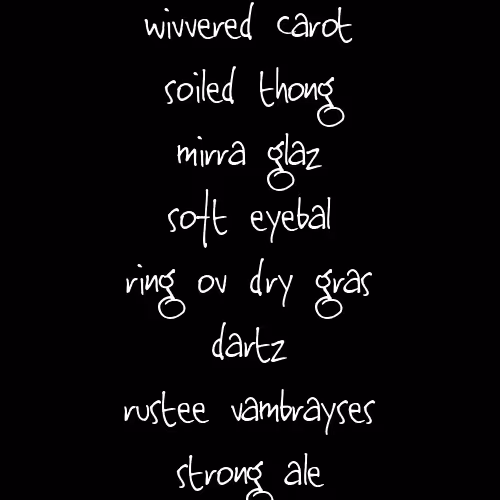 wivvered carot
soiled thong
mirra glaz
soft eyebal
ring ov dry gras
dartz
rustee vambrayses
strong ale